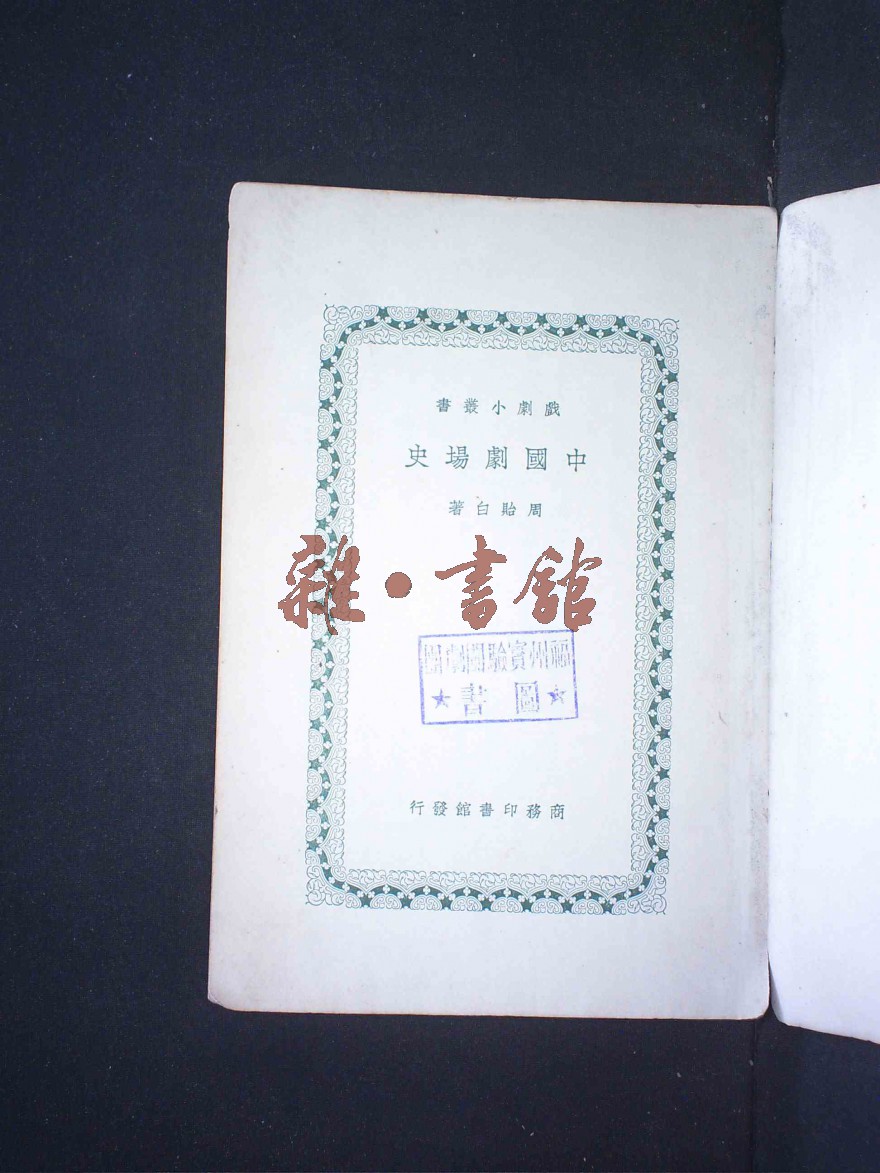 戲劇小叢書
中國劇場史
周貽白著
雜·書館
福州實驗閩劇團
★圖書★
商務印書館發行